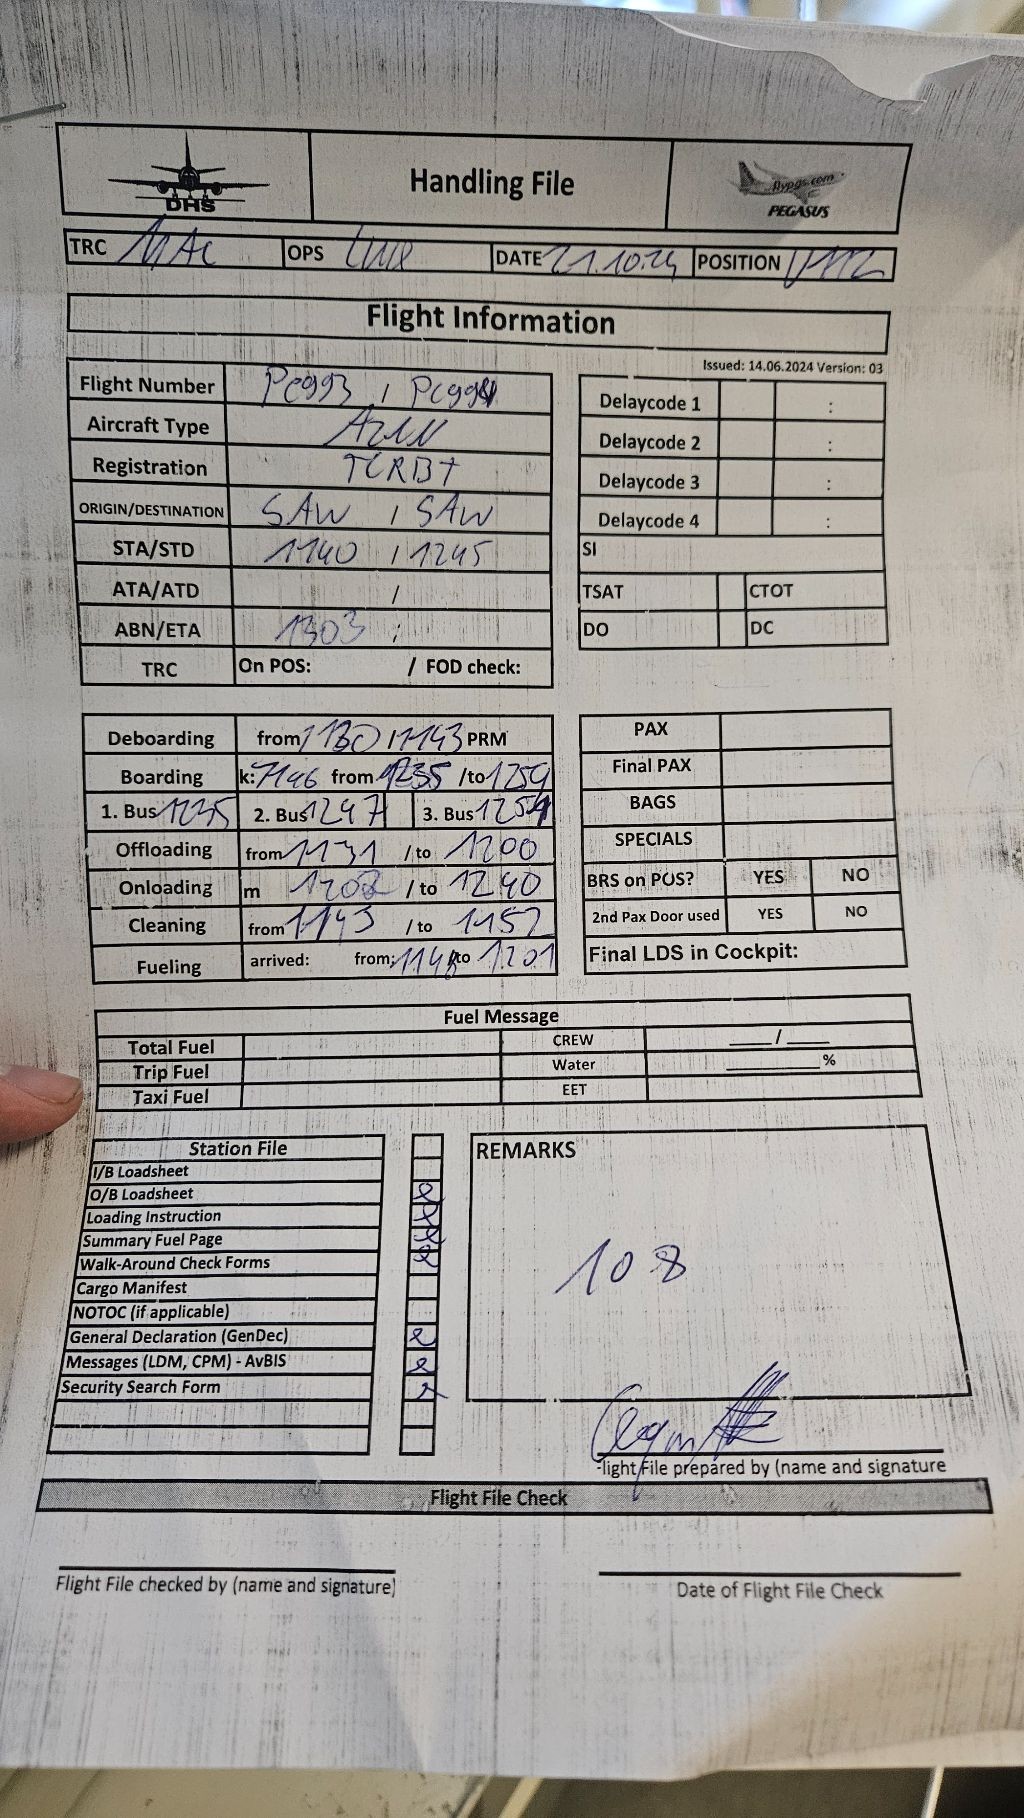 DHS
Handling File
flypgs.com
PEGASUS
TRC MAC OPS DATE 21.10.24 POSITION
Flight Information
Issued: 14.06.2024 Version: 03
Flight Number PC993 / PC994
Aircraft Type
Registration TCRBT
ORIGIN/DESTINATION SAW / SAW
STA/STD 1140 / 1245
ATA/ATD /
ABN/ETA 1303 :
TRC On POS: / FOD check:
Delaycode 1 :
Delaycode 2 :
Delaycode 3 :
Delaycode 4 :
SI
TSAT CTOT
DO DC
Deboarding from 1130 / 1143 PRM
Boarding k: from 1235 /to 1259
1. Bus 2. Bus 1247 3. Bus 1254
Offloading from 1131 /to 1200
Onloading m 1202 /to 1240
Cleaning from 1143 /to 1152
Fueling arrived: from: 1148 to 1201
PAX
Final PAX
BAGS
SPECIALS
BRS on POS? YES NO
2nd Pax Door used YES NO
Final LDS in Cockpit:
Fuel Message
Total Fuel CREW ____/____
Trip Fuel Water _________%
Taxi Fuel EET
Station File
I/B Loadsheet
O/B Loadsheet
Loading Instruction
Summary Fuel Page
Walk-Around Check Forms
Cargo Manifest
NOTOC (if applicable)
General Declaration (GenDec)
Messages (LDM, CPM) - AvBIS
Security Search Form
REMARKS
108
light File prepared by (name and signature
Flight File Check
Flight File checked by (name and signature)
Date of Flight File Check